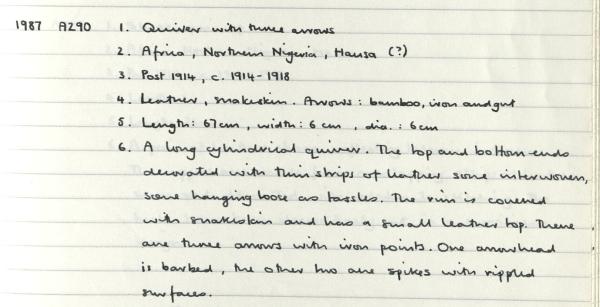 1987 A290 1. Quiver with three arrows
2. Africa, Northern Nigeria, Hausa (?)
3. Post 1914, c. 1914-1918
4. Leather, snakeskin. Arrows: bamboo, iron and gut
5. Length: 67cm, width: 6 cm, dia.: 6cm
6. A long cylindrical quiver. The top and bottom ends
decorated with thin strips of leather some interwoven,
some hanging loose as tassles. The rim is covered
with snakeskin and has a small leather top. There
are three arrows with iron points. One arrowhead
is barbed, the other two are spikes with rippled
surfaces.